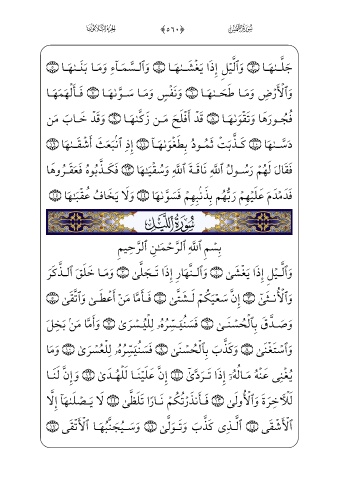 سورة الليل ﴿٥٦٠﴾ الجزء الثلاثون
جَلَّىٰهَا ۝٣ وَٱلَّيْلِ إِذَا يَغْشَىٰهَا ۝٤ وَٱلسَّمَآءِ وَمَا بَنَىٰهَا ۝٥
وَٱلْأَرْضِ وَمَا طَحَىٰهَا ۝٦ وَنَفْسٍ وَمَا سَوَّىٰهَا ۝٧ فَأَلْهَمَهَا
فُجُورَهَا وَتَقْوَىٰهَا ۝٨ قَدْ أَفْلَحَ مَن زَكَّىٰهَا ۝٩ وَقَدْ خَابَ مَن
دَسَّىٰهَا ۝١٠ كَذَّبَتْ ثَمُودُ بِطَغْوَىٰهَآ ۝١١ إِذِ ٱنۢبَعَثَ أَشْقَىٰهَا ۝١٢
فَقَالَ لَهُمْ رَسُولُ ٱللَّهِ نَاقَةَ ٱللَّهِ وَسُقْيَٰهَا ۝١٣ فَكَذَّبُوهُ فَعَقَرُوهَا
فَدَمْدَمَ عَلَيْهِمْ رَبُّهُم بِذَنۢبِهِمْ فَسَوَّىٰهَا ۝١٤ وَلَا يَخَافُ عُقْبَٰهَا ۝١٥
سُورَةُ اللَّيْلِ
بِسْمِ ٱللَّهِ ٱلرَّحْمَٰنِ ٱلرَّحِيمِ
وَٱلَّيْلِ إِذَا يَغْشَىٰ ۝١ وَٱلنَّهَارِ إِذَا تَجَلَّىٰ ۝٢ وَمَا خَلَقَ ٱلذَّكَرَ
وَٱلْأُنثَىٰٓ ۝٣ إِنَّ سَعْيَكُمْ لَشَتَّىٰ ۝٤ فَأَمَّا مَنْ أَعْطَىٰ وَٱتَّقَىٰ ۝٥
وَصَدَّقَ بِٱلْحُسْنَىٰ ۝٦ فَسَنُيَسِّرُهُۥ لِلْيُسْرَىٰ ۝٧ وَأَمَّا مَنۢ بَخِلَ
وَٱسْتَغْنَىٰ ۝٨ وَكَذَّبَ بِٱلْحُسْنَىٰ ۝٩ فَسَنُيَسِّرُهُۥ لِلْعُسْرَىٰ ۝١٠ وَمَا
يُغْنِى عَنْهُ مَالُهُۥٓ إِذَا تَرَدَّىٰٓ ۝١١ إِنَّ عَلَيْنَا لَلْهُدَىٰ ۝١٢ وَإِنَّ لَنَا
لَلْآخِرَةَ وَٱلْأُولَىٰ ۝١٣ فَأَنذَرْتُكُمْ نَارًا تَلَظَّىٰ ۝١٤ لَا يَصْلَىٰهَآ إِلَّا
ٱلْأَشْقَى ۝١٥ ٱلَّذِى كَذَّبَ وَتَوَلَّىٰ ۝١٦ وَسَيُجَنَّبُهَا ٱلْأَتْقَى ۝١٧